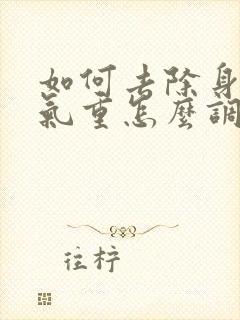 如何去除身
氣重怎麼調
往柠